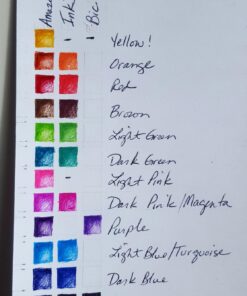 Amazon
Ink
Bic
Yellow!
Orange
Red
Brown
Light Green
Dark Green
Light Pink
Dark Pink/Magenta
Purple
Light Blue/Turquoise
Dark Blue